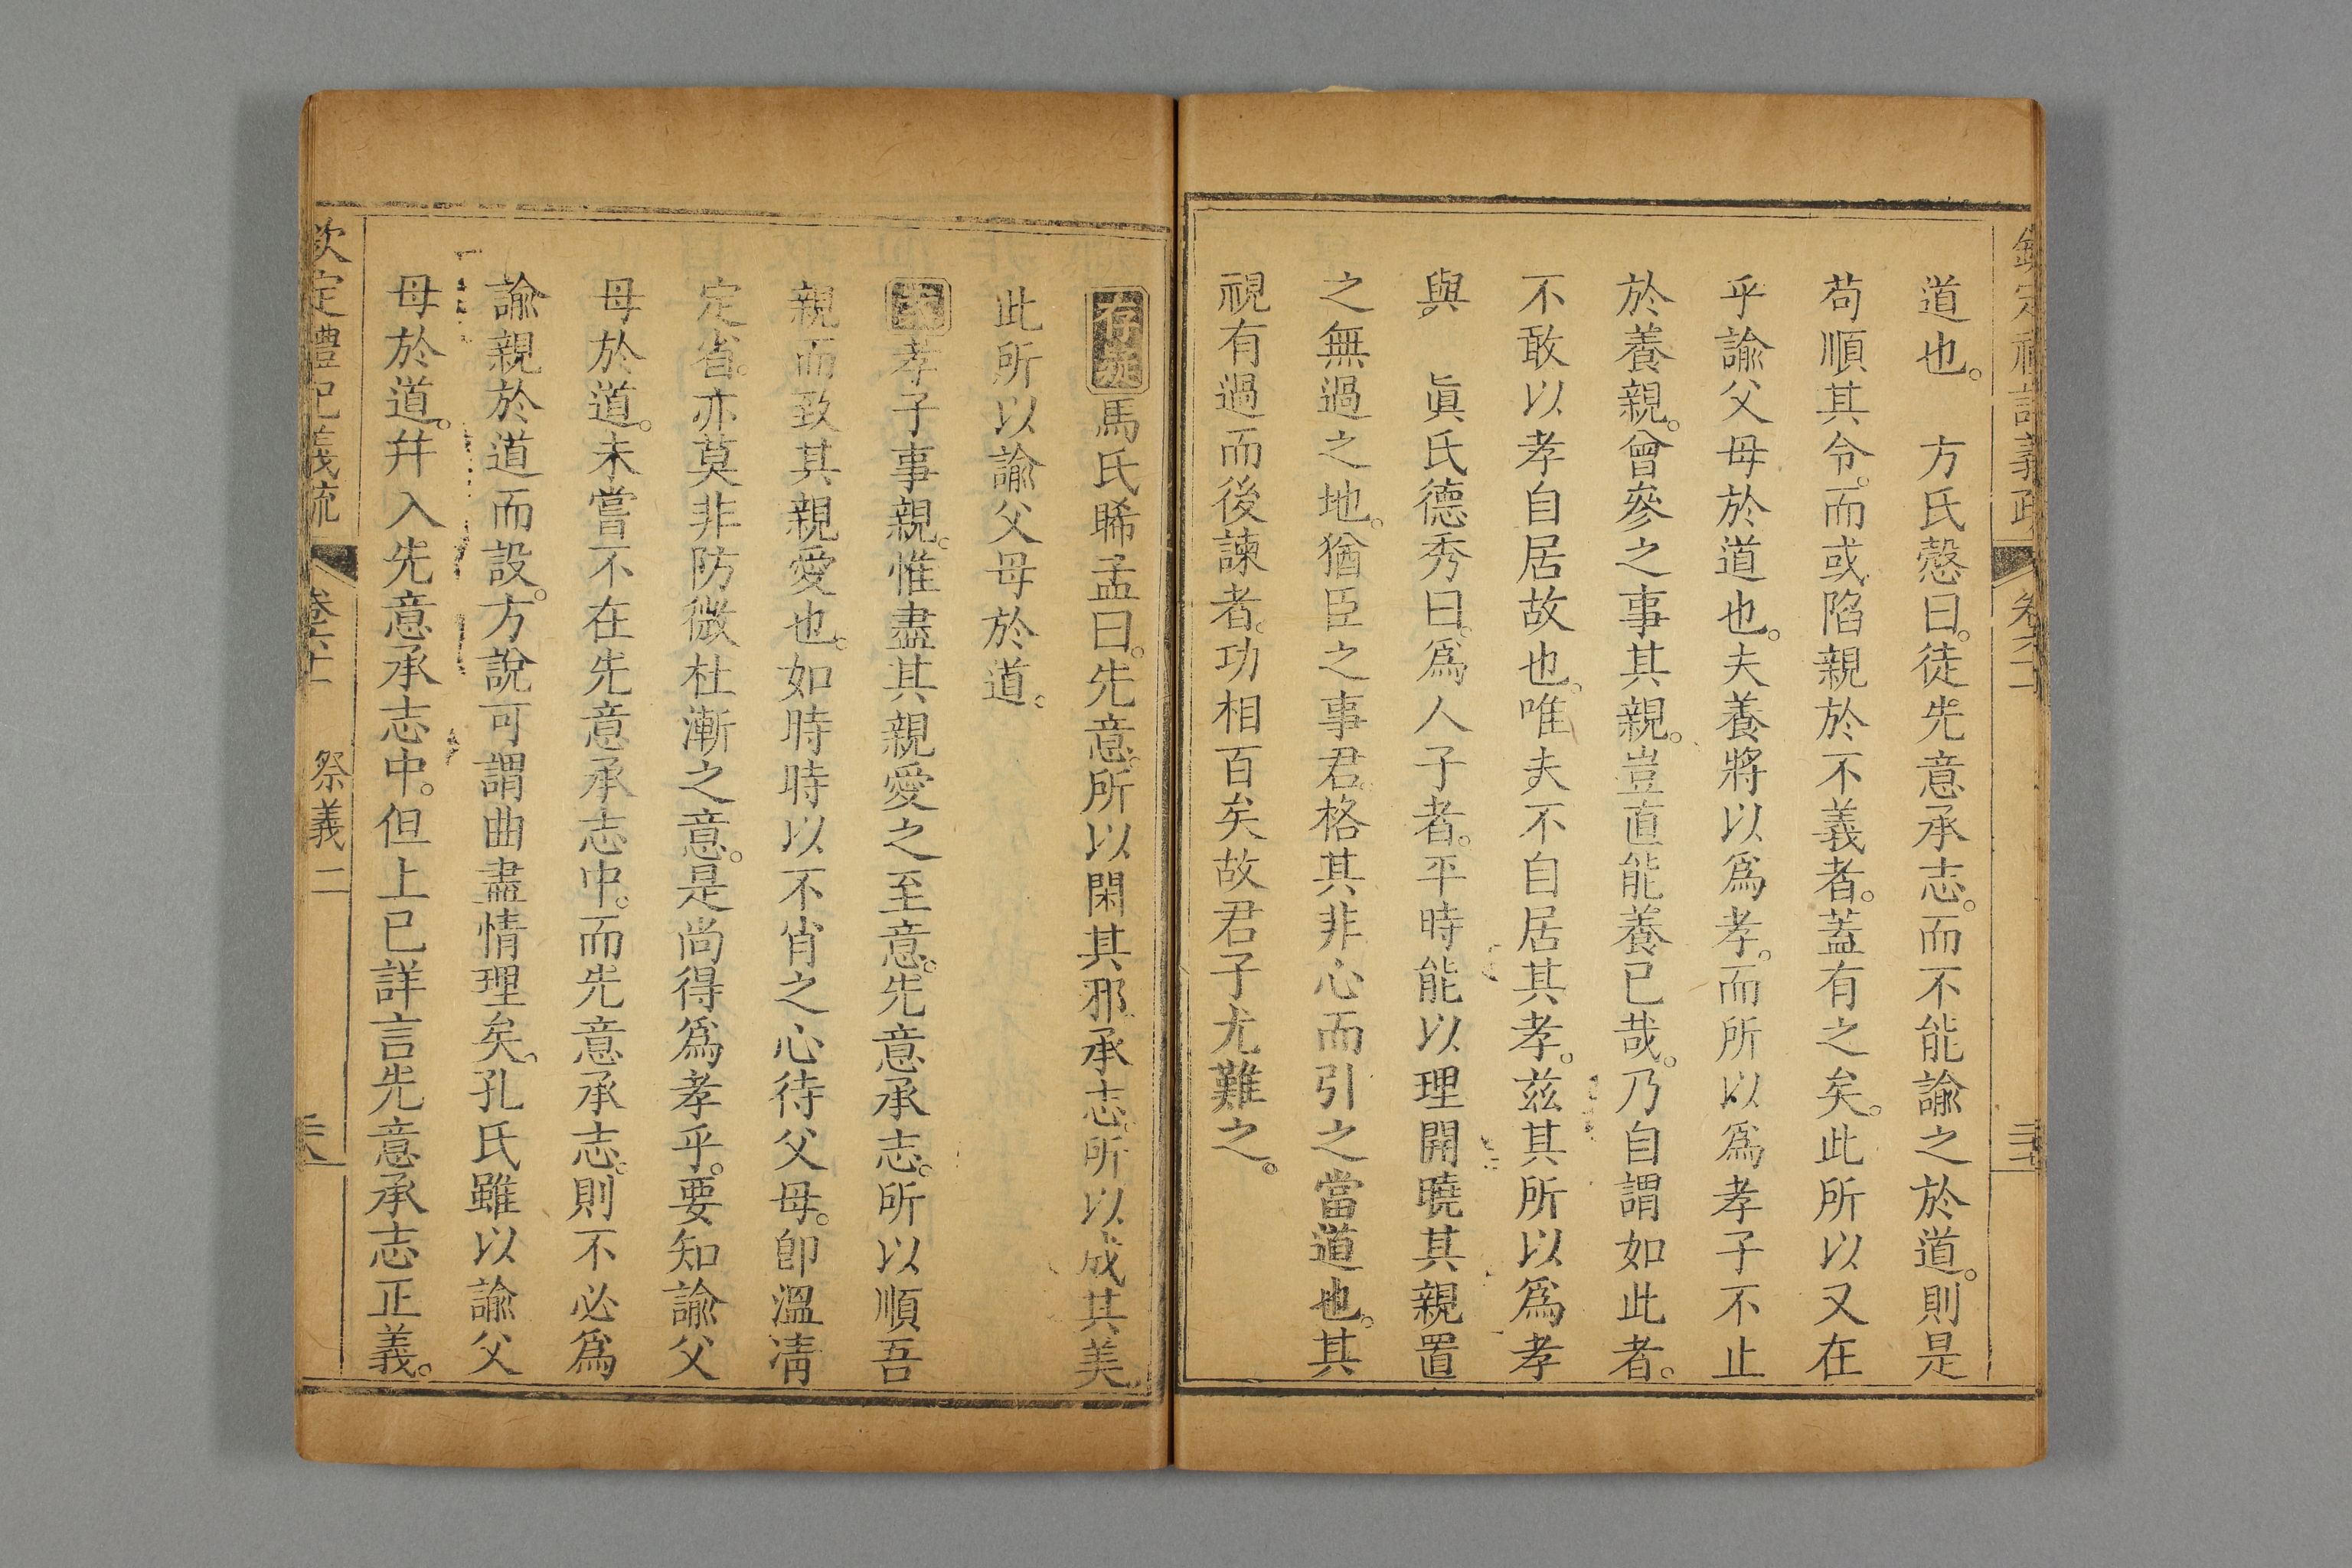 道也。　方氏慤曰。徒先意承志。而不能諭之於道。則是
苟順其令。而或陷親於不義者。蓋有之矣。此所以又在
乎諭父母於道也。夫養將以爲孝。而所以爲孝子不止
於養親。曾參之事其親。豈直能養已哉。乃自謂如此者。
不敢以孝自居故也。唯夫不自居其孝。茲其所以爲孝
與　眞氏德秀曰。爲人子者。平時能以理開曉其親置
之無過之地。猶臣之事君。格其非心而引之當道也。其
視有過而後諫者。功相百矣故君子尤難之。
存疑馬氏睎孟曰。先意。所以閑其邪承志。所以成其美。
此所以諭父母於道。
案孝子事親。惟盡其親愛之至意。先意承志。所以順吾
親而致其親愛也。如時時以不肖之心待父母。卽溫凊
定省。亦莫非防微杜漸之意。是尚得爲孝乎。要知諭父
母於道。未嘗不在先意承志中。而先意承志。則不必爲
諭親於道而設。方說可謂曲盡情理矣。孔氏雖以諭父
母於道。幷入先意承志中。但上已詳言先意承志正義。
欽定禮記義疏　卷六十　祭義二